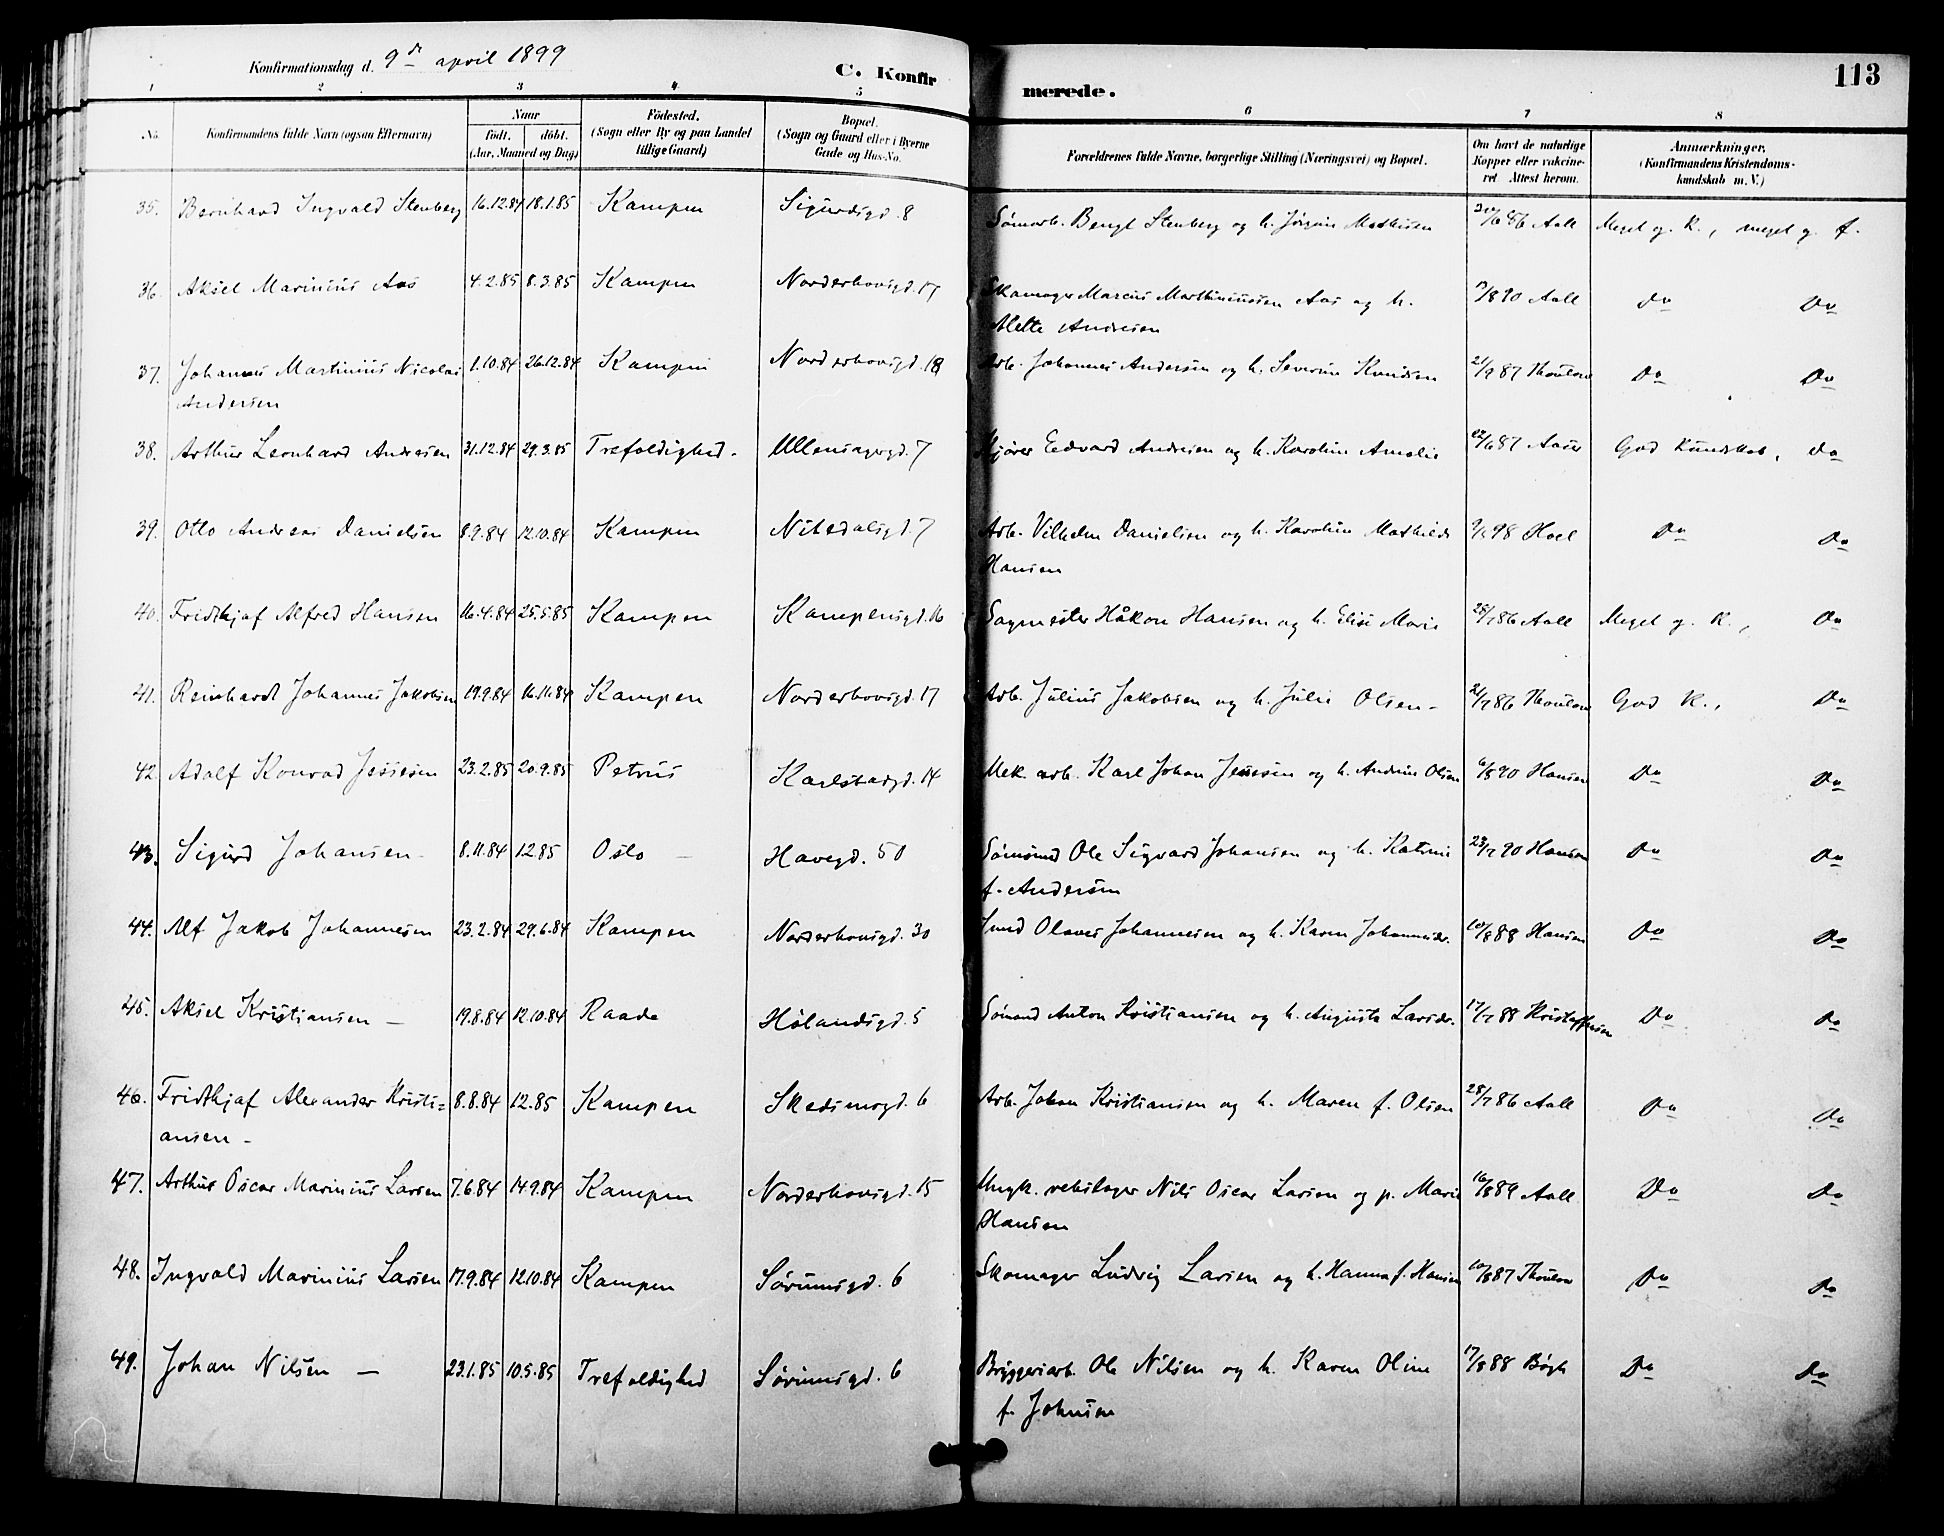 Konfirmationsdag d. 9de april 1899
C. Konfirmerede.
113
1 2 3 4 5 6 7 8
No. Konfirmandens fulde Navn (ogsaa Efternavn) Naar födt. döbt. (Aar, Maaned og Dag) Födested. (Sogn eller By og paa Landet tillige Gaard) Bopæl. (Sogn og Gaard eller i Byerne Gade og Hus-No. Forældrenes fulde Navne, borgerlige Stilling (Næringsvei) og Bopæl. Om havt de naturlige Kopper eller vakcineret Attest herom. Anmærkninger. (Konfirmandens Kristendomskundskab m. V.)
35. Bernhard Ingvald Stenberg 16.12.84 18.1.85 Kampen Sigurdsgd. 8 Sömarb. Bengt Stenberg og h. Jörgine Mathisen 86 Aall Meget g. K., meget g. f.
36. Aksel Marinius Aas 4.2.85 8.3.85 Kampen Norderhovsgd. 17 Skomager Marcus Marthiniussen Aas og h. 90 Aall Do Do
Mette Andresen
37. Johannes Martinius Nicolai 1.10.84 26.12.84 Kampen Norderhovsgd. 18 Arb. Johannes Andersen og h. Severine Knudsen 21/9 87 Thoulow Do Do
Andersen
38. Arthur Leonhard Andresen 31.12.84 29.3.85 Trefoldighed. Ullensagergd. 7 Kjörer Edvard Andresen og h. Karoline Amalie 87 Aaser God Kundskab, Do
39. Otto Andreas Danielsen 8.9.84 12.10.84 Kampen Nitedalsgd. 7 Arb. Vilhelm Danielsen og h. Karoline Mathilde 98 Hoel Do Do
Hansen
40. Fridthjof Alfred Hansen 16.4.84 25.5.85 Kampen Kampensgd. 16 Sagmester Håkon Hansen og h. Elise Marie 28/7 86 Aall Meget g. K., Do
41. Reinhardt Johannes Jakobsen 19.9.84 16.11.84 Kampen Norderhovsgd. 17 Arb. Julius Jakobsen og h. Julie Olsen - 21/7 86 Thoulow God K., Do
42. Adolf Konrad Jessesen 23.2.85 20.9.85 Petrus Karlstadgd. 14 Mek. arb. Karl Johan Jessesen og h. Andrine Olsen 6/8 90 Hansen Do Do
43. Sigurd Johansen - 8.11.84 1.2.85 Oslo - Havegd. 50 Sömand Ole Sigvard Johansen og h. Katrine 23/7 90 Hansen Do Do
f. Andersen
44. Alf Jakob Johannesen 23.2.84 29.6.84 Kampen Norderhovsgd. 30 Smed Olaves Johannesen og h. Karen Johannesdr. 10/8 88 Hansen Do Do
45. Aksel Kristiansen - 19.8.84 12.10.84 Raade Hölandsgd. 5 Sömand Anton Kristiansen og h. Augusta Larsdr. 17/7 88 Kristoffersen Do Do
46. Fridthjof Alexander Kristi= 8.8.84 1.2.85 Kampen Skedsmogd. 6 Arb. Johan Kristiansen og h. Maren f. Olsen 28/7 86 Aall Do Do
ansen -
47. Arthur Oscar Marinius Larsen 7.6.84 14.9.84 Kampen Norderhovsgd. 15 Ungk. rebslager Nils Oscar Larsen og p. Marie 16/8 89 Aall Do Do
Hansen
48. Ingvald Marinius Larsen 17.9.84 12.10.84 Kampen Sörumsgd. 6 Skomager Ludvig Larsen og h. Hanna f. Hansen 10/8 87 Thoulow Do Do
49. Johan Nilsen - 23.1.85 10.5.85 Trefoldighed Sörumsgd. 6 Bryggeriarb. Ole Nilsen og h. Karen Oline 17/8 88 Bögh Do Do
f. Johnsen